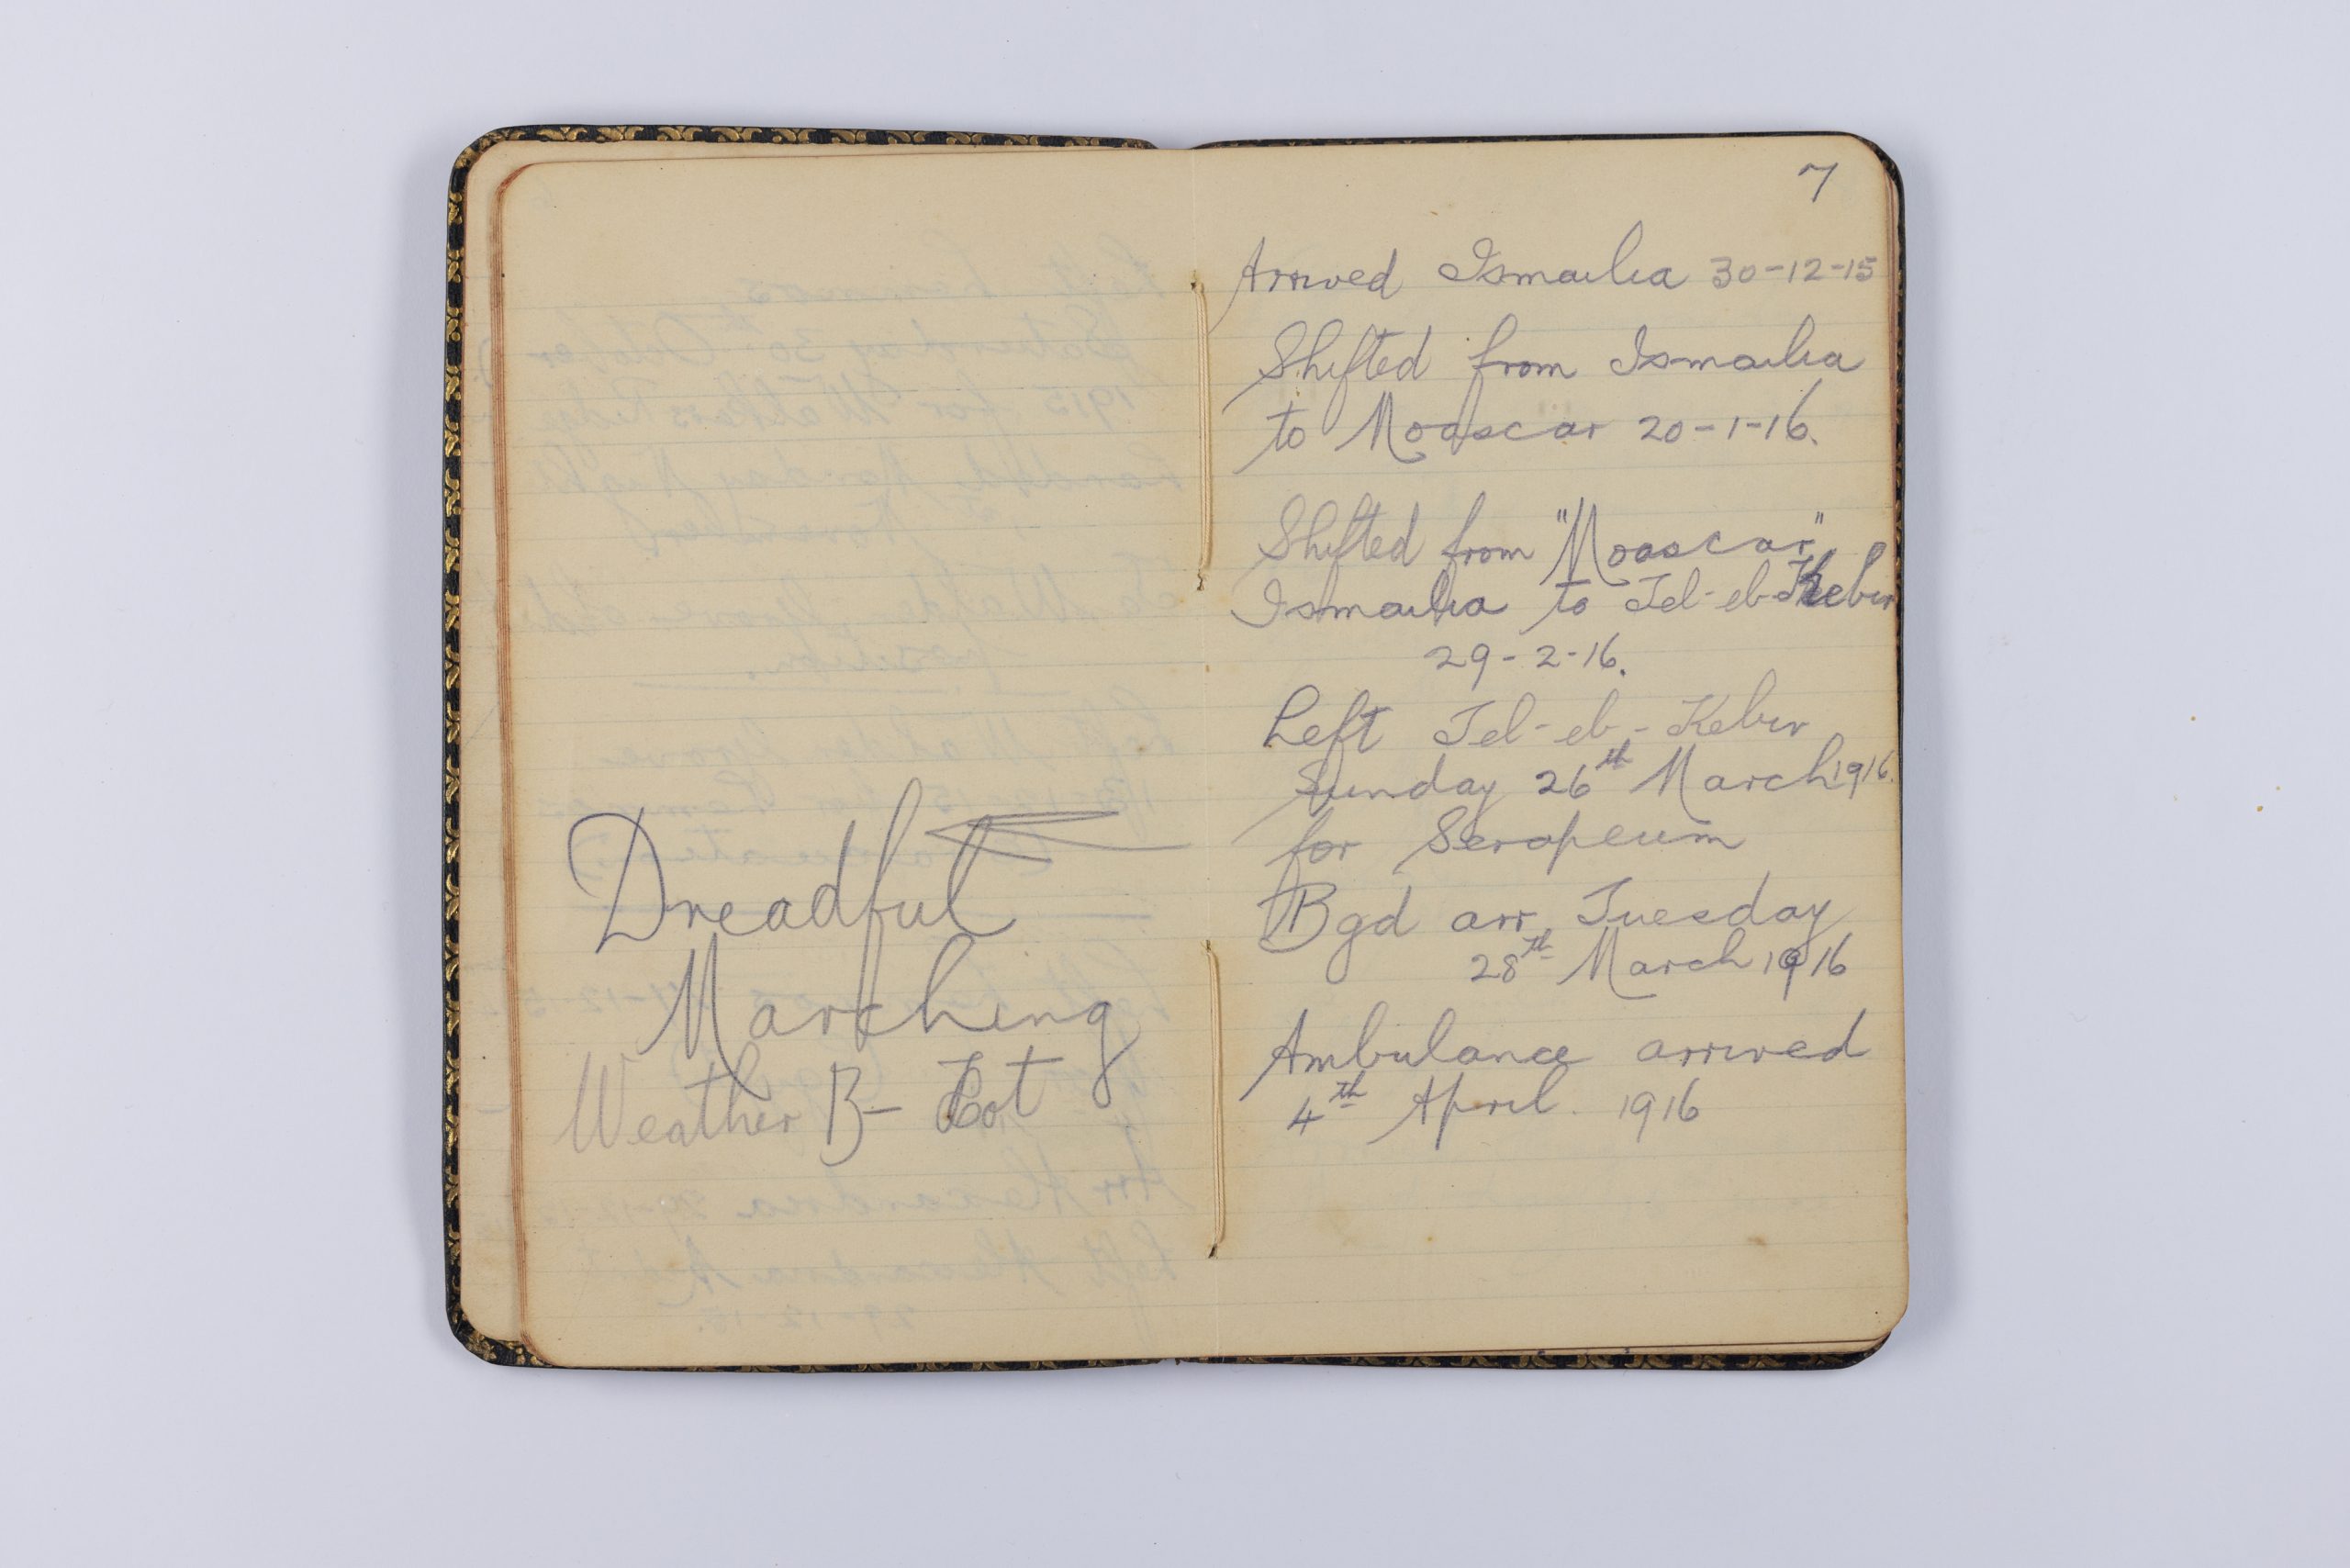 Dreadful
Marching
Weather B- Hot
7
Arrived Ismailia 30-12-15
Shifted from Ismailia
to Moascar 20-1-16.
Shifted from "Moascar"
Ismailia to Tel-eb-Kebir
29-2-16.
Left Tel-eb-Kebir
Sunday 26th March 1916.
for Serapeum
Bgd arr Tuesday
28th March 1916
Ambulance arrived
4th April. 1916